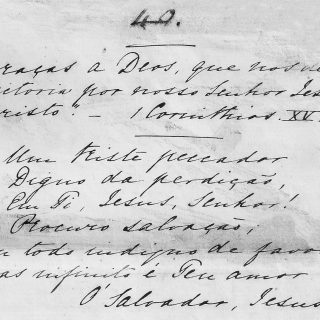 40.
raças a Deos, que nos d
itoria por nosso Senhor Jes
risto." – 1 Corinthios XV.
Um triste peccador
Digno da perdição,
Em Ti, Jesus, Senhor!
Procuro salvação;
u todo indigno de favo
as infinito é Teu amor
O' Salvador, Jesus